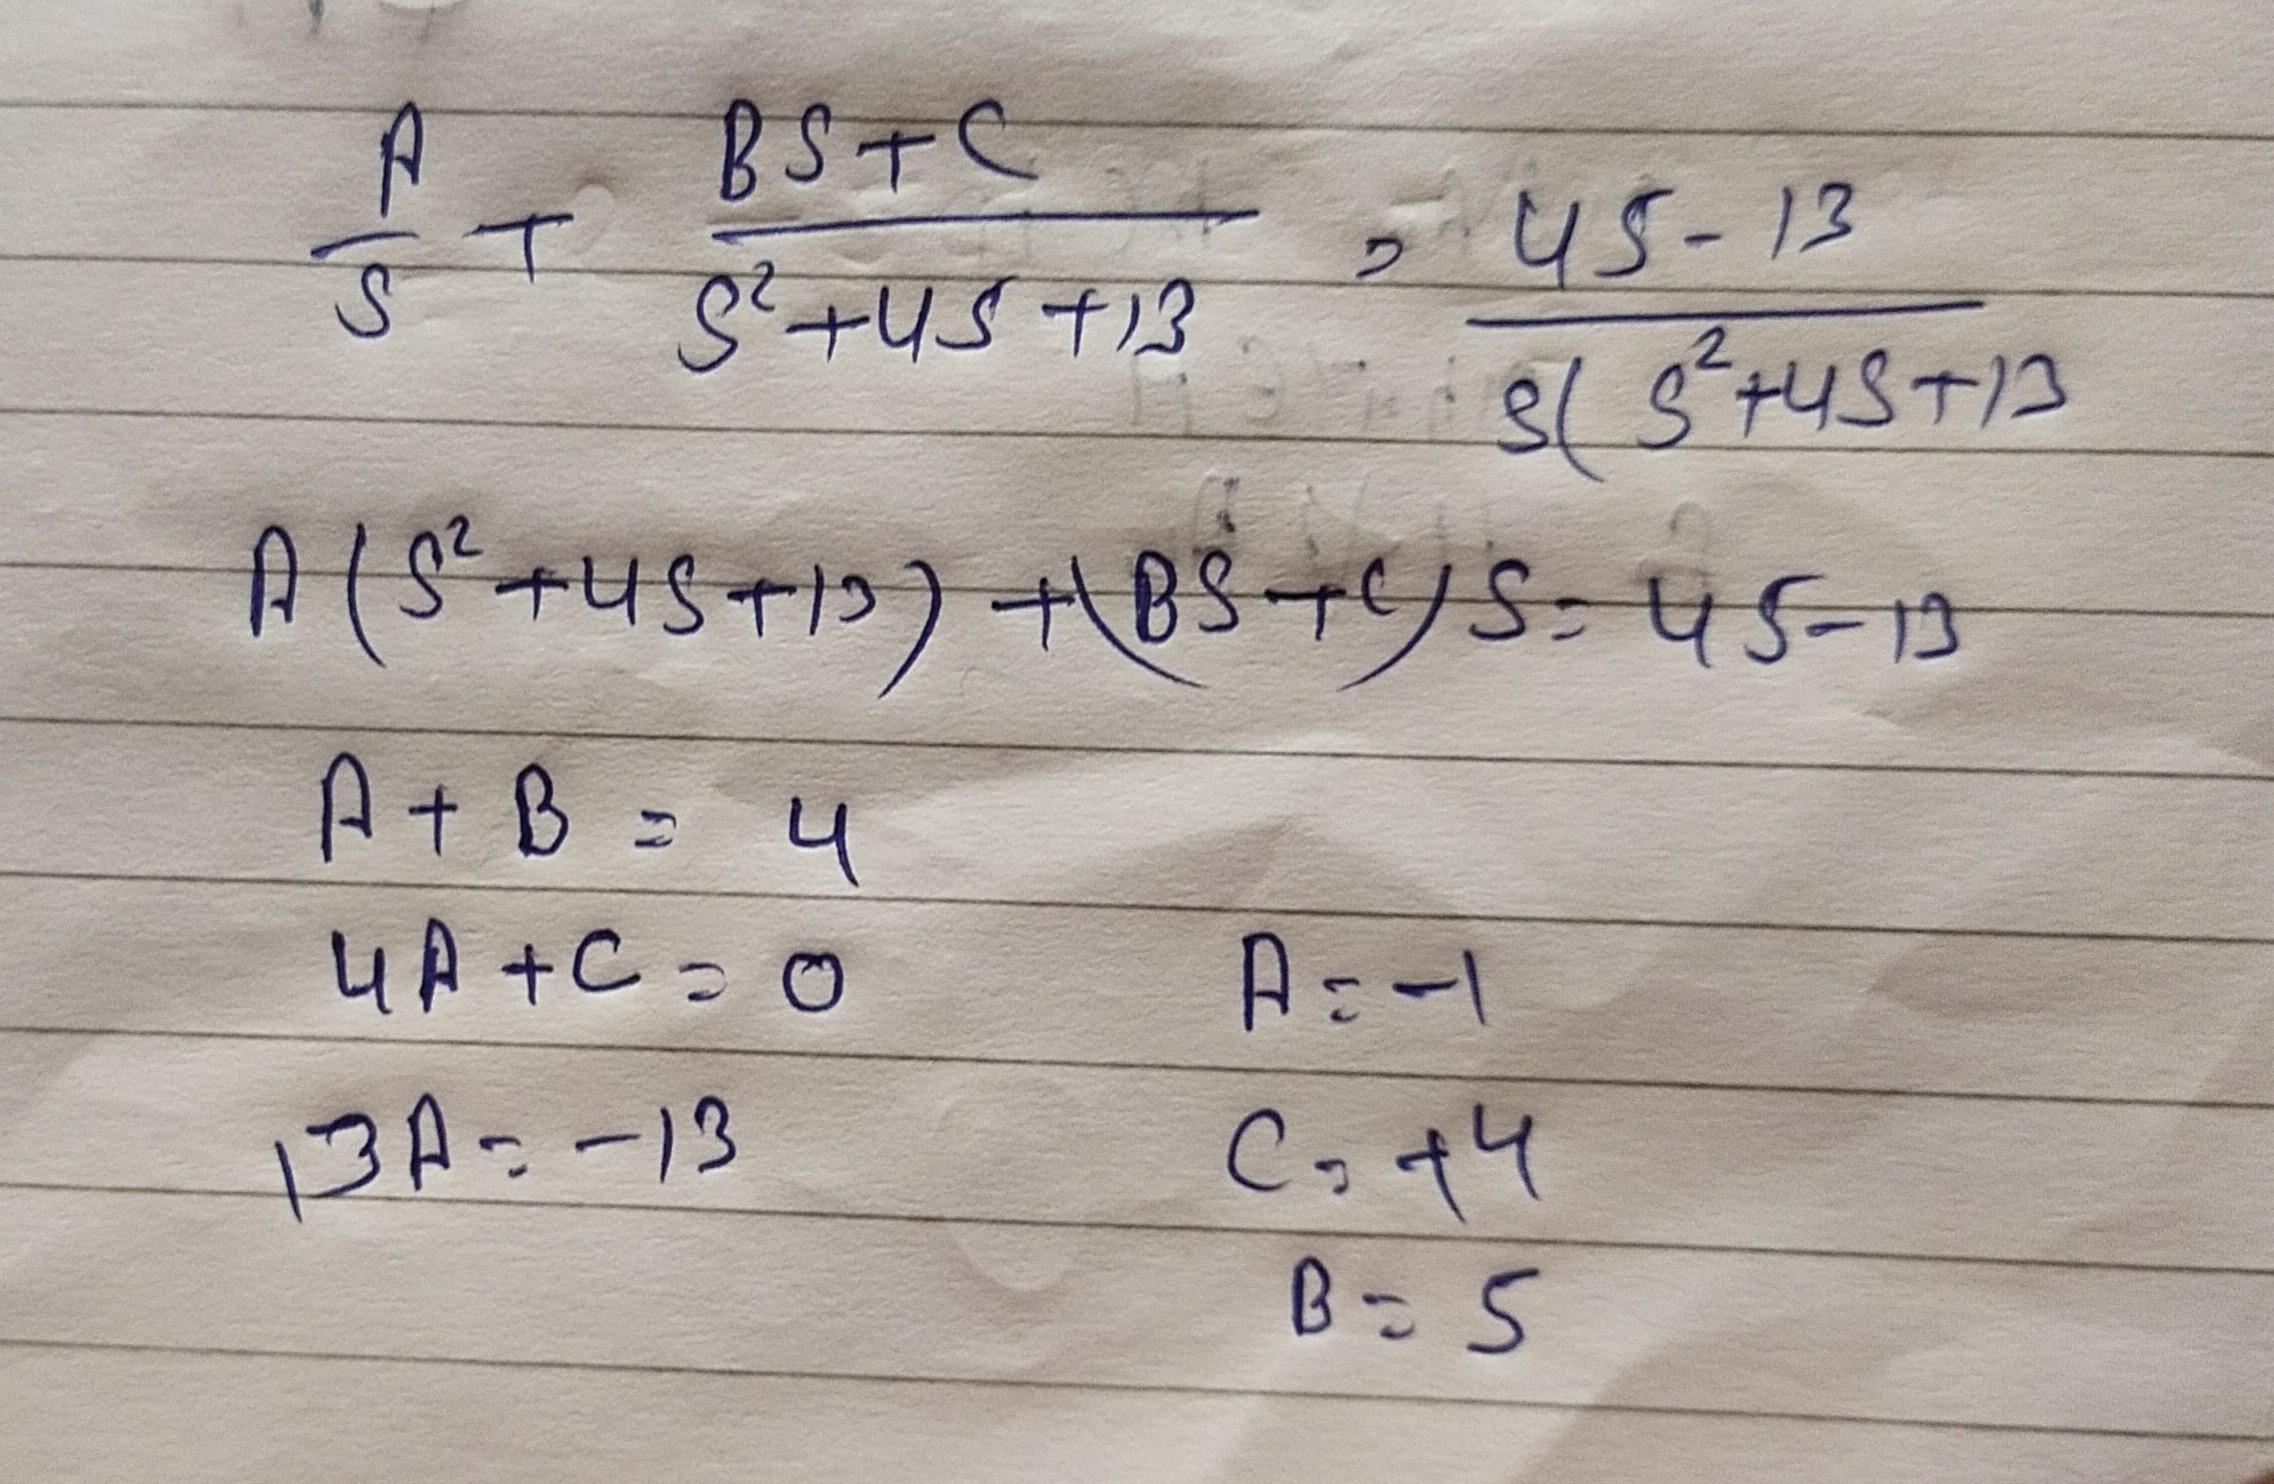 A/S + (BS+C)/(S²+4S+13) = (4S-13)/(S(S²+4S+13)
A(S²+4S+13)+(BS+C)S=4S-13
A+B=4
4A+C=0 A=-1
13A=-13 C=+4
B=5